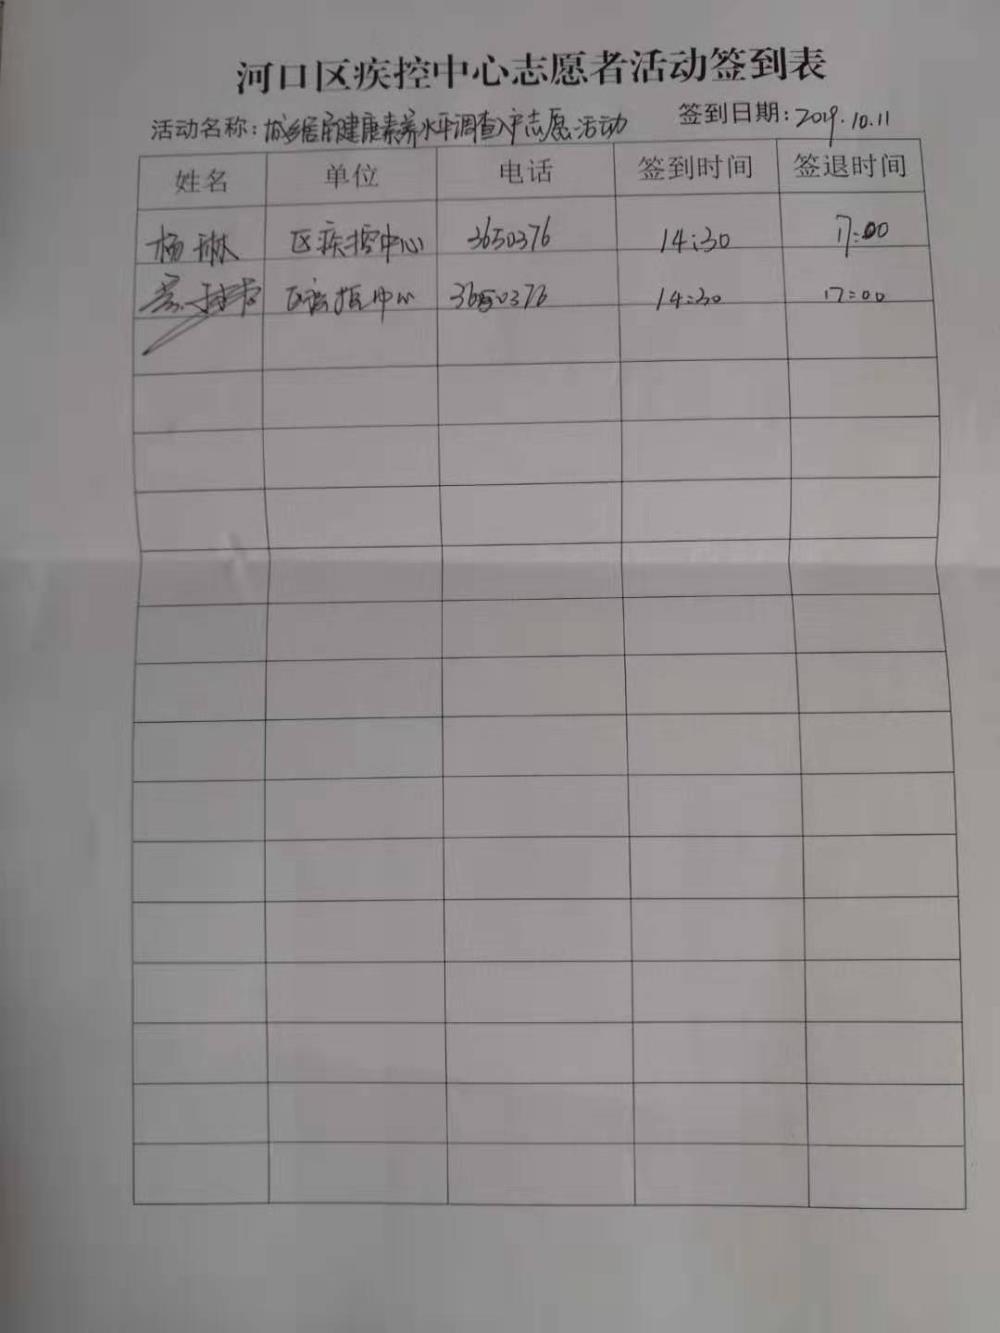 河口区疾控中心志愿者活动签到表
活动名称：城乡居民健康素养水平调查入户志愿活动 签到日期：2019.10.11
姓名 单位 电话 签到时间 签退时间
杨琳 区疾控中心 3650376 14:30 17:00
区疾控中心 3650376 14:30 17:00